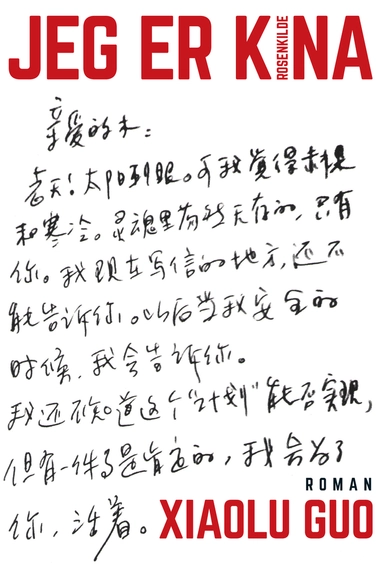 JEG ER KINA
ROSENKILDE
亲爱的木：
老天！太阳刺眼。可我覺得赤裸
和寒冷。灵魂里 无存的，只有
你。我现在写信的地方，还不
能告诉你。以后当我安全的
时候，我会告诉你。
我还不知道这个“计划”能否实现，
但有一件事是肯定的，我会为了
你，活着。
ROMAN
XIAOLU GUO